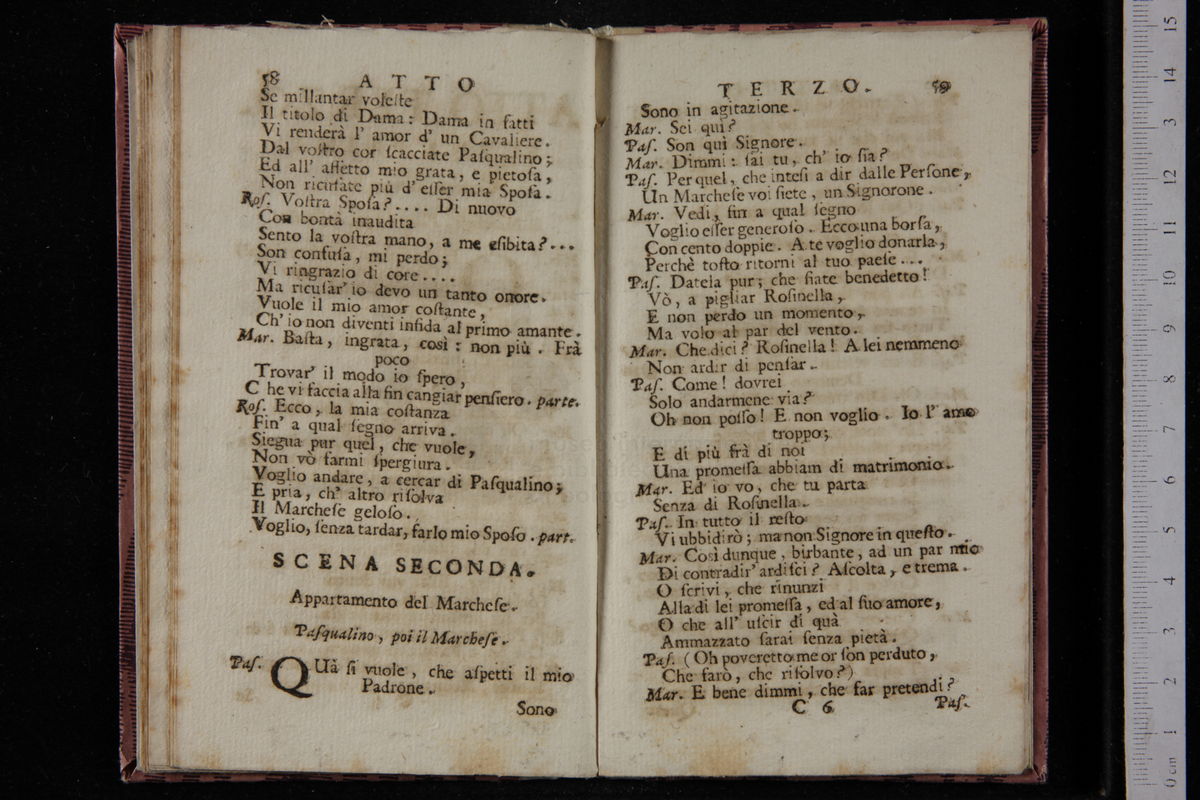 58 ATTO
Se millantar voleſte
Il titolo di Dama: Dama in fatti
Vi renderà l' amor d' un Cavaliere.
Dal voſtro cor ſcacciate Paſqualino;
Ed all' affetto mio grata, e pietoſa,
Non ricuſate più d' eſſer mia Spoſa.
Roſ. Voſtra Spoſa?.... Di nuovo
Con bontà inaudita
Sento la voſtra mano, a me eſibita?...
Son confuſa, mi perdo;
Vi ringrazio di core....
Ma ricuſar' io devo un tanto onore.
Vuole il mio amor coſtante,
Ch' io non diventi infida al primo amante.
Mar. Baſta, ingrata, così: non più. Frà
poco
Trovar' il modo io ſpero,
C he vi faccia alla fin cangiar penſiero. parte.
Roſ. Ecco, la mia coſtanza
Fin' a qual ſegno arriva.
Siegua pur quel, che vuole,
Non vò farmi ſpergiura.
Voglio andare, a cercar di Paſqualino;
E pria, ch' altro riſolva
Il Marcheſe geloſo.
Voglio, ſenza tardar, farlo mio Spoſo. part.
SCENA SECONDA.
Appartamento del Marcheſe.
Paſqualino, poi il Marcheſe.
Paſ. QUà ſi vuole, che aſpetti il mio
Padrone.
Sono
TERZO. 59
Sono in agitazione.
Mar. Sei quì?
Paſ. Son quì Signore.
Mar. Dimmi: ſai tu, ch' io ſia?
Paſ. Per quel, che inteſi a dir dalle Perſone,
Un Marcheſe voi ſiete, un Signorone.
Mar. Vedi, fin a qual ſegno
Voglio eſſer generoſo. Ecco una borſa,
Con cento doppie. A te voglio donarla,
Perchè toſto ritorni al tuo paeſe....
Paſ. Datela pur; che ſiate benedetto!
Vò, a pigliar Roſinella,
E non perdo un momento,
Ma volo al par del vento.
Mar. Che dici? Roſinella! A lei nemmeno
Non ardir di penſar.
Paſ. Come! dovrei
Solo andarmene via?
Oh non poſſo! E non voglio. Io l' amo
troppo;
E di più frà di noi
Una promeſſa abbiam di matrimonio.
Mar. Ed io vo, che tu parta
Senza di Roſinella.
Paſ. In tutto il reſto
Vi ubbidirò; ma non Signore in queſto.
Mar. Così dunque, birbante, ad un par mio
Di contradir' ardiſci? Aſcolta, e trema.
O ſcrivi, che rinunzi
Alla di lei promeſſa, ed al ſuo amore,
O che all' uſcir di quà
Ammazzato ſarai ſenza pietà.
Paſ. (Oh poveretto me or ſon perduto,
Che farò, che riſolvo?)
Mar. E bene dimmi, che far pretendi?
C 6 Paſ.